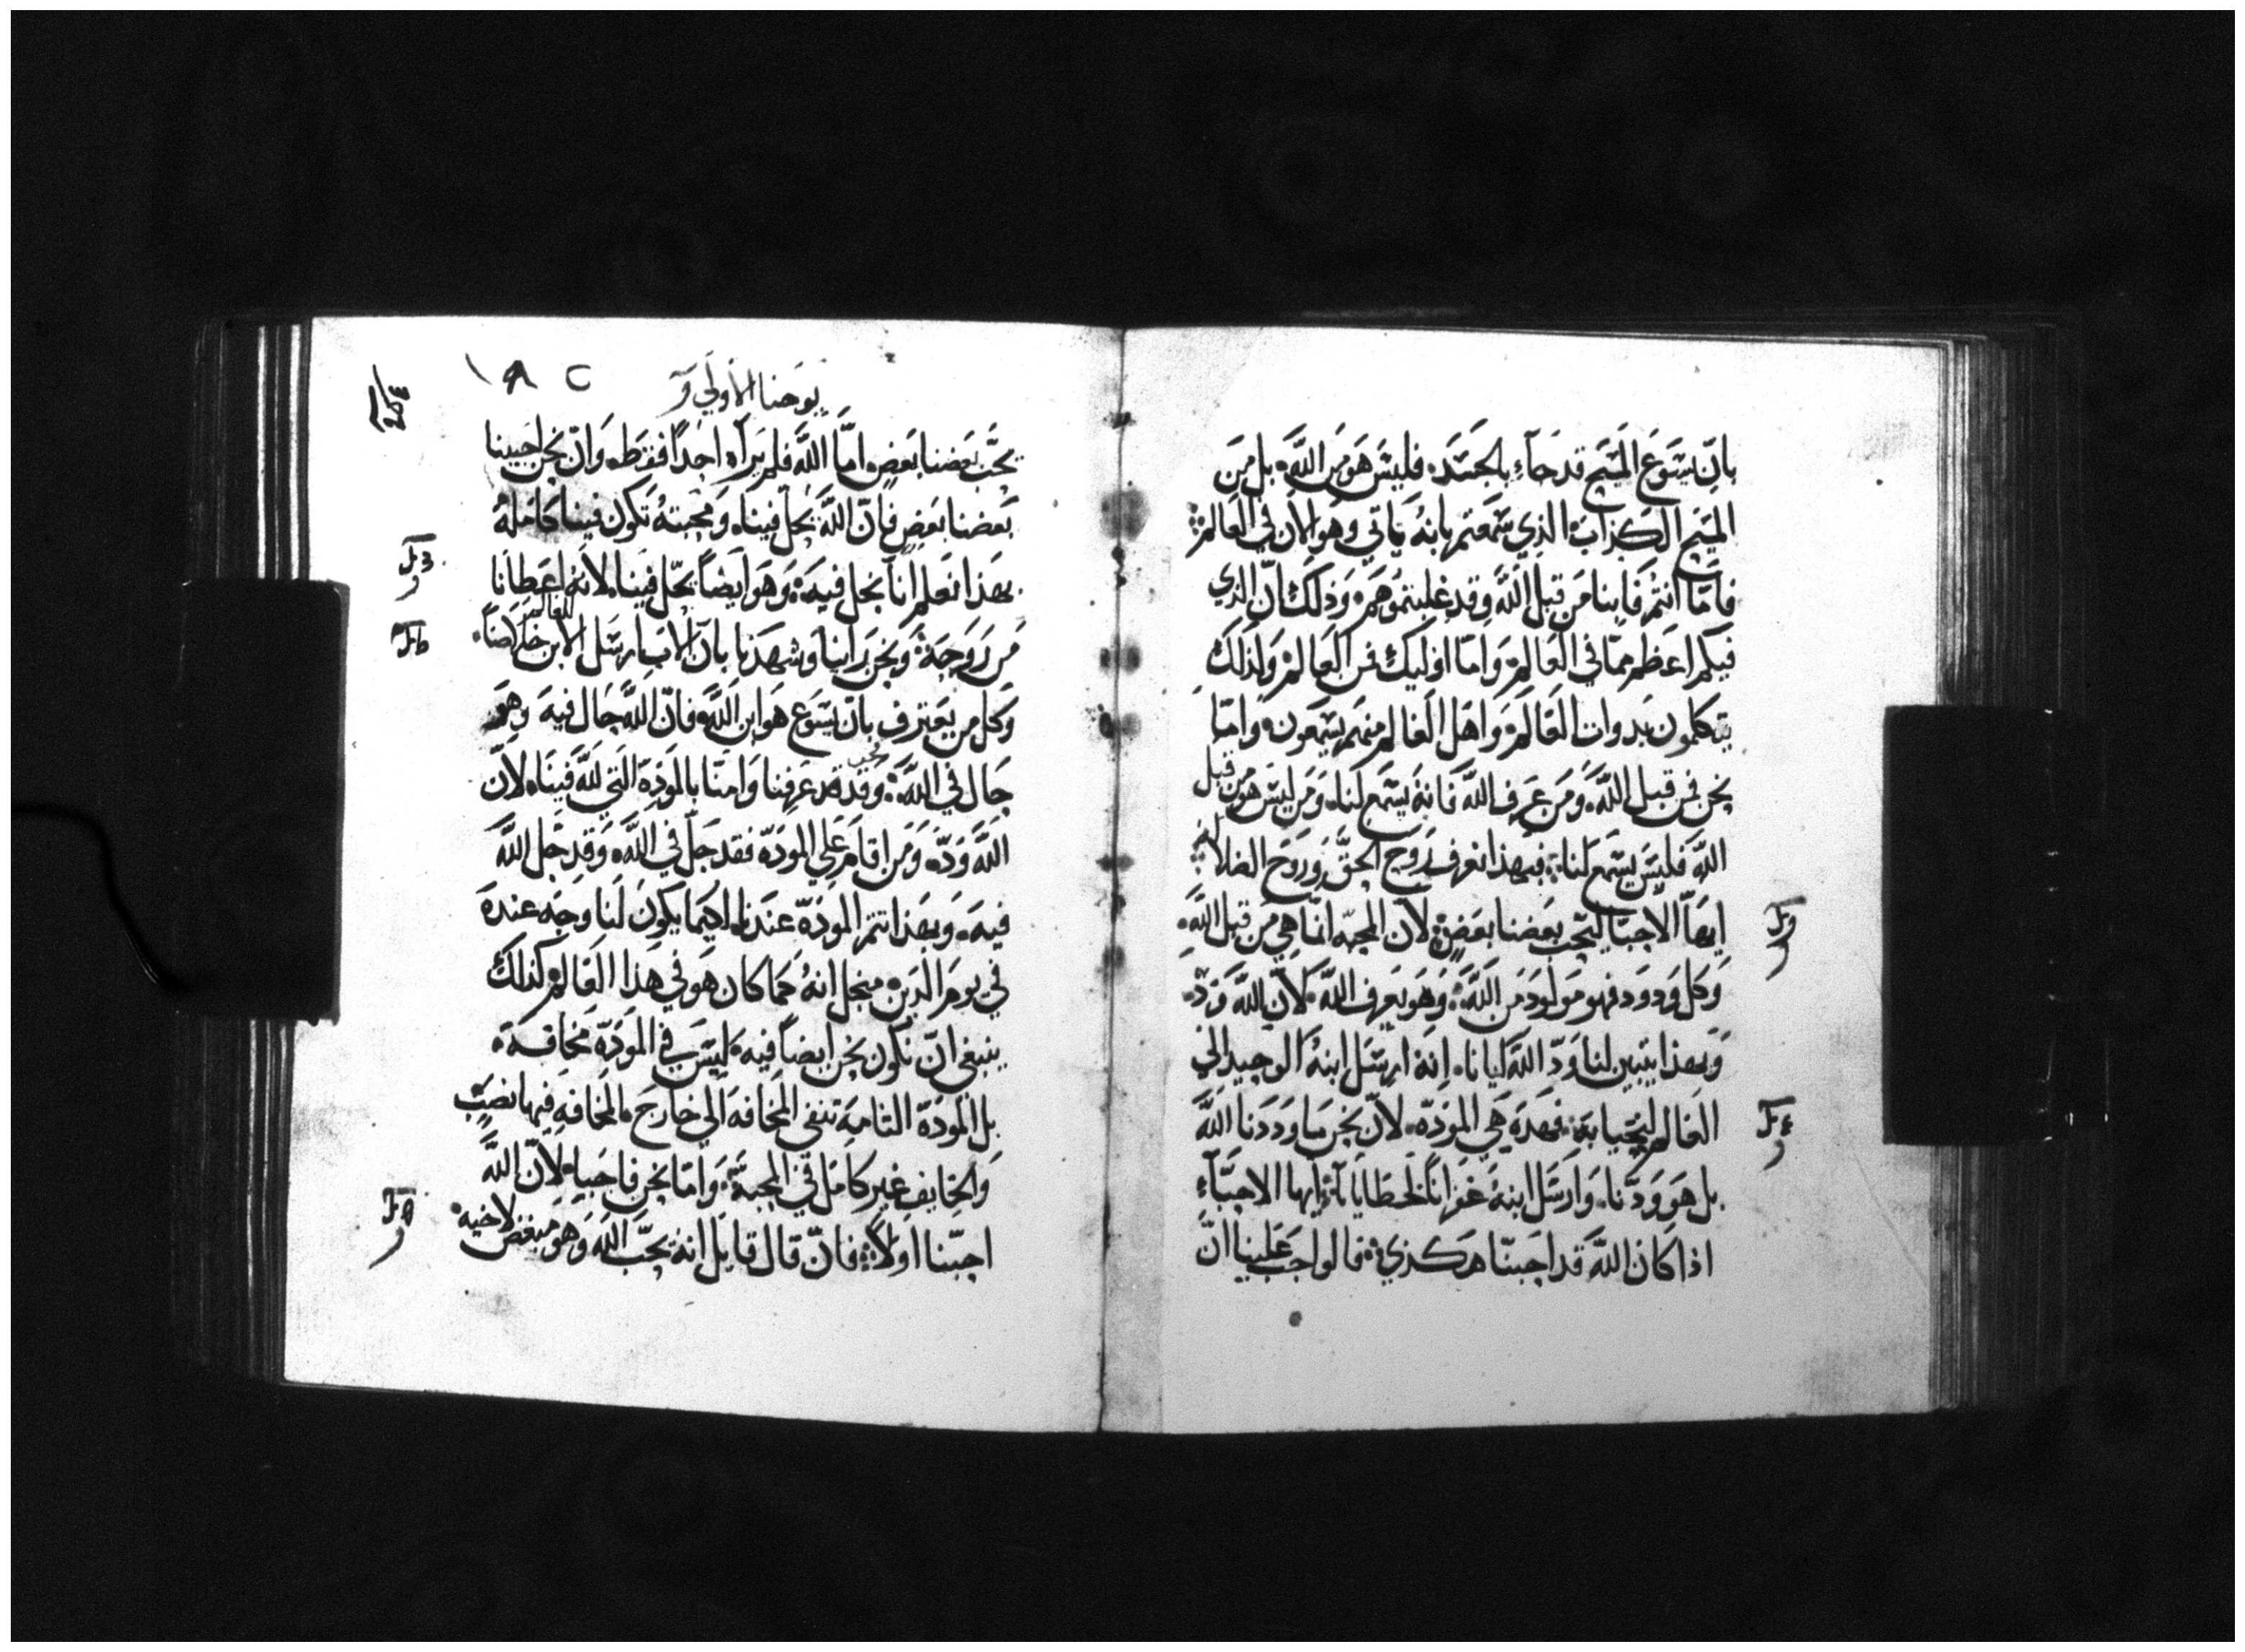 بان يسوع المسيح قد جاء بالجسد. فليس هو من الله. بل من
المسيح الكذاب الذي سمعتم بانه ياتي وهو الان في العالم
فاما انتم فابنا من قبل الله وقد غلبتموهم. وذلك ان الذي
فيكم اعظم مما في العالم. واما اوليك فمن العالم ولذلك
يتكلمون بدوات العالم. واهل العالم منهم يسمعون. واما
نحن فمن قبل الله. ومن عرف الله فانه يسمع لنا. ومن ليس هو من قبل
الله فليس يسمع لنا. فبهذا نعرف روح الحق وروح الضلالة
ايها الاحبا ليحب بعضنا بعض. لان المحبه انما هي من قبل الله.
وكل ودود فهو مولود من الله. وهو يعرف الله. لان الله ود.
وبهذا يتبين لنا ود الله ايانا. انه ارسل ابنه الوحيد الي
العالم ليحيا به. فهذه هي المودة. لان نحن ما وددنا الله
بل هو ودنا. وارسل ابنه غفرانا لخطايانا ايها الاحباء
اذا كان الله قد احبنا هكذي. فالواجب علينا ان
يوحنا الاولي
يحب بعضنا بعض. اما الله فلم يراه احدا فقط. وان نحن احببنا
بعضنا بعض فان الله يحل فينا. ومحبته تكون فينا كاملة
بهذا نعلم انا نحل فيه. وهو ايضا يحل فينا. لانه اعطانا
من روحه. ونحن راينا وشهدنا بان الاب ارسل الابن خلاصا. للعالم
وكل من يعترف بان يسوع هو ابن الله. فان الله حال فيه وهو
حال في الله. ونحن قد عرفنا وامنا بالمودة التي لله فينا. لان
الله ود. ومن اقام علي المودة فقد حل في الله. وقد حل الله
فيه. وبهذا تتم المودة عندنا. لكيما يكون لنا وجه عنده
في يوم الدين. من اجل انه كما كان هو في هذا العالم كذلك
ينبغي ان نكون نحن ايضا فيه. ليس في المودة مخافة.
بل المودة التامة تنفي المخافة الي خارج. المخافه فيها نصب
والخايف غير كامل في المحبة. واما نحن فاحبا. لان الله
احبنا اولا. فان قال قايل انه يحب الله وهو مبغض لاخيه.